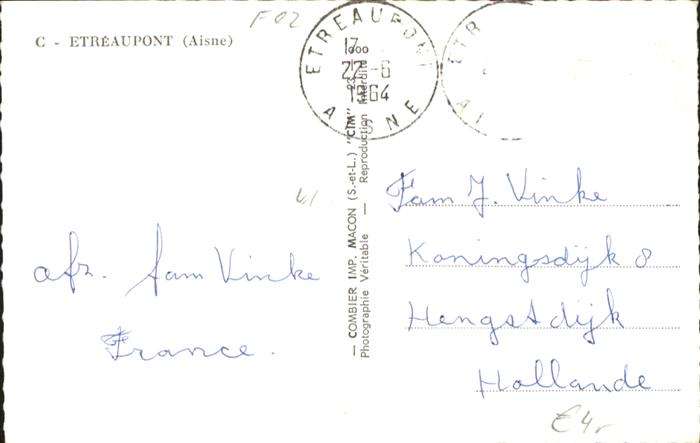 F02
C - ETRÉAUPONT (Aisne)
ETREAUPONT
17 00
22-6
1964
AISNE
ETR
AI
— COMBIER IMP. MACON (S.-et-L.) "CIM"
Photographie Véritable — Reproduction Interdite
Fam J. Vinke
Koningsdijk 8
Hengstdijk
Hollande
afz. fam Vinke
France.
€4,